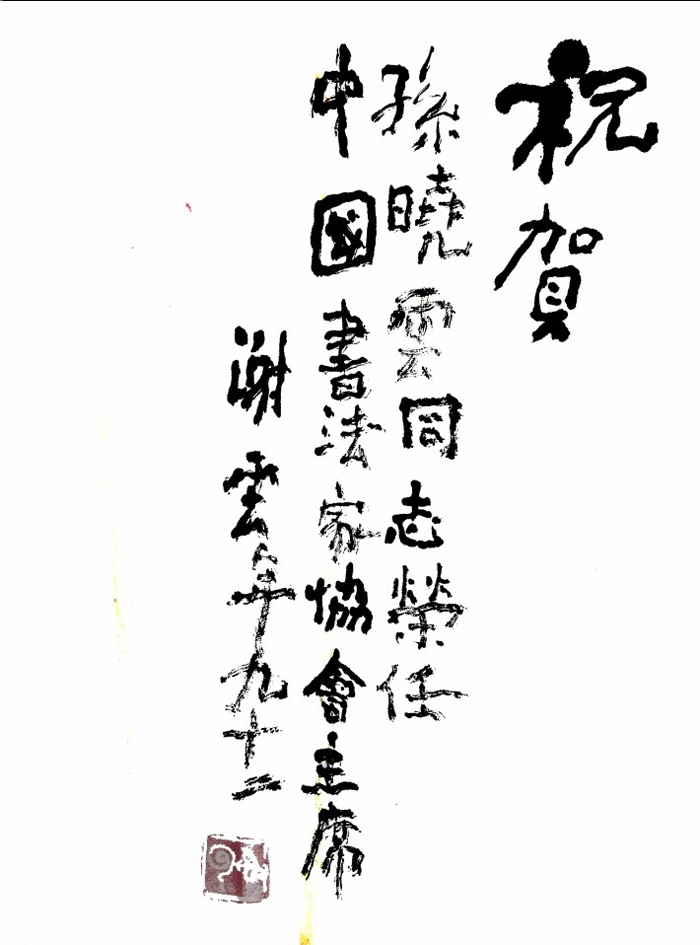 祝賀
孫曉雲同志榮任
中國書法家協會主席
謝雲年九十二